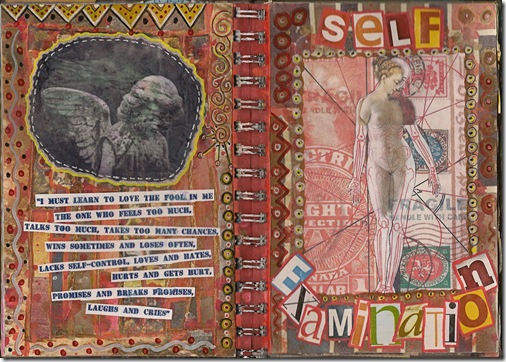 "I MUST LEARN TO LOVE THE FOOL IN ME
THE ONE WHO FEELS TOO MUCH,
TALKS TOO MUCH, TAKES TOO MANY CHANCES,
WINS SOMETIMES AND LOSES OFTEN,
LACKS SELF-CONTROL, LOVES AND HATES,
HURTS AND GETS HURT,
PROMISES AND BREAKS PROMISES,
LAUGHS AND CRIES"
SELF
FRAGILE
HANDLE WITH CARE
ExaminatioN